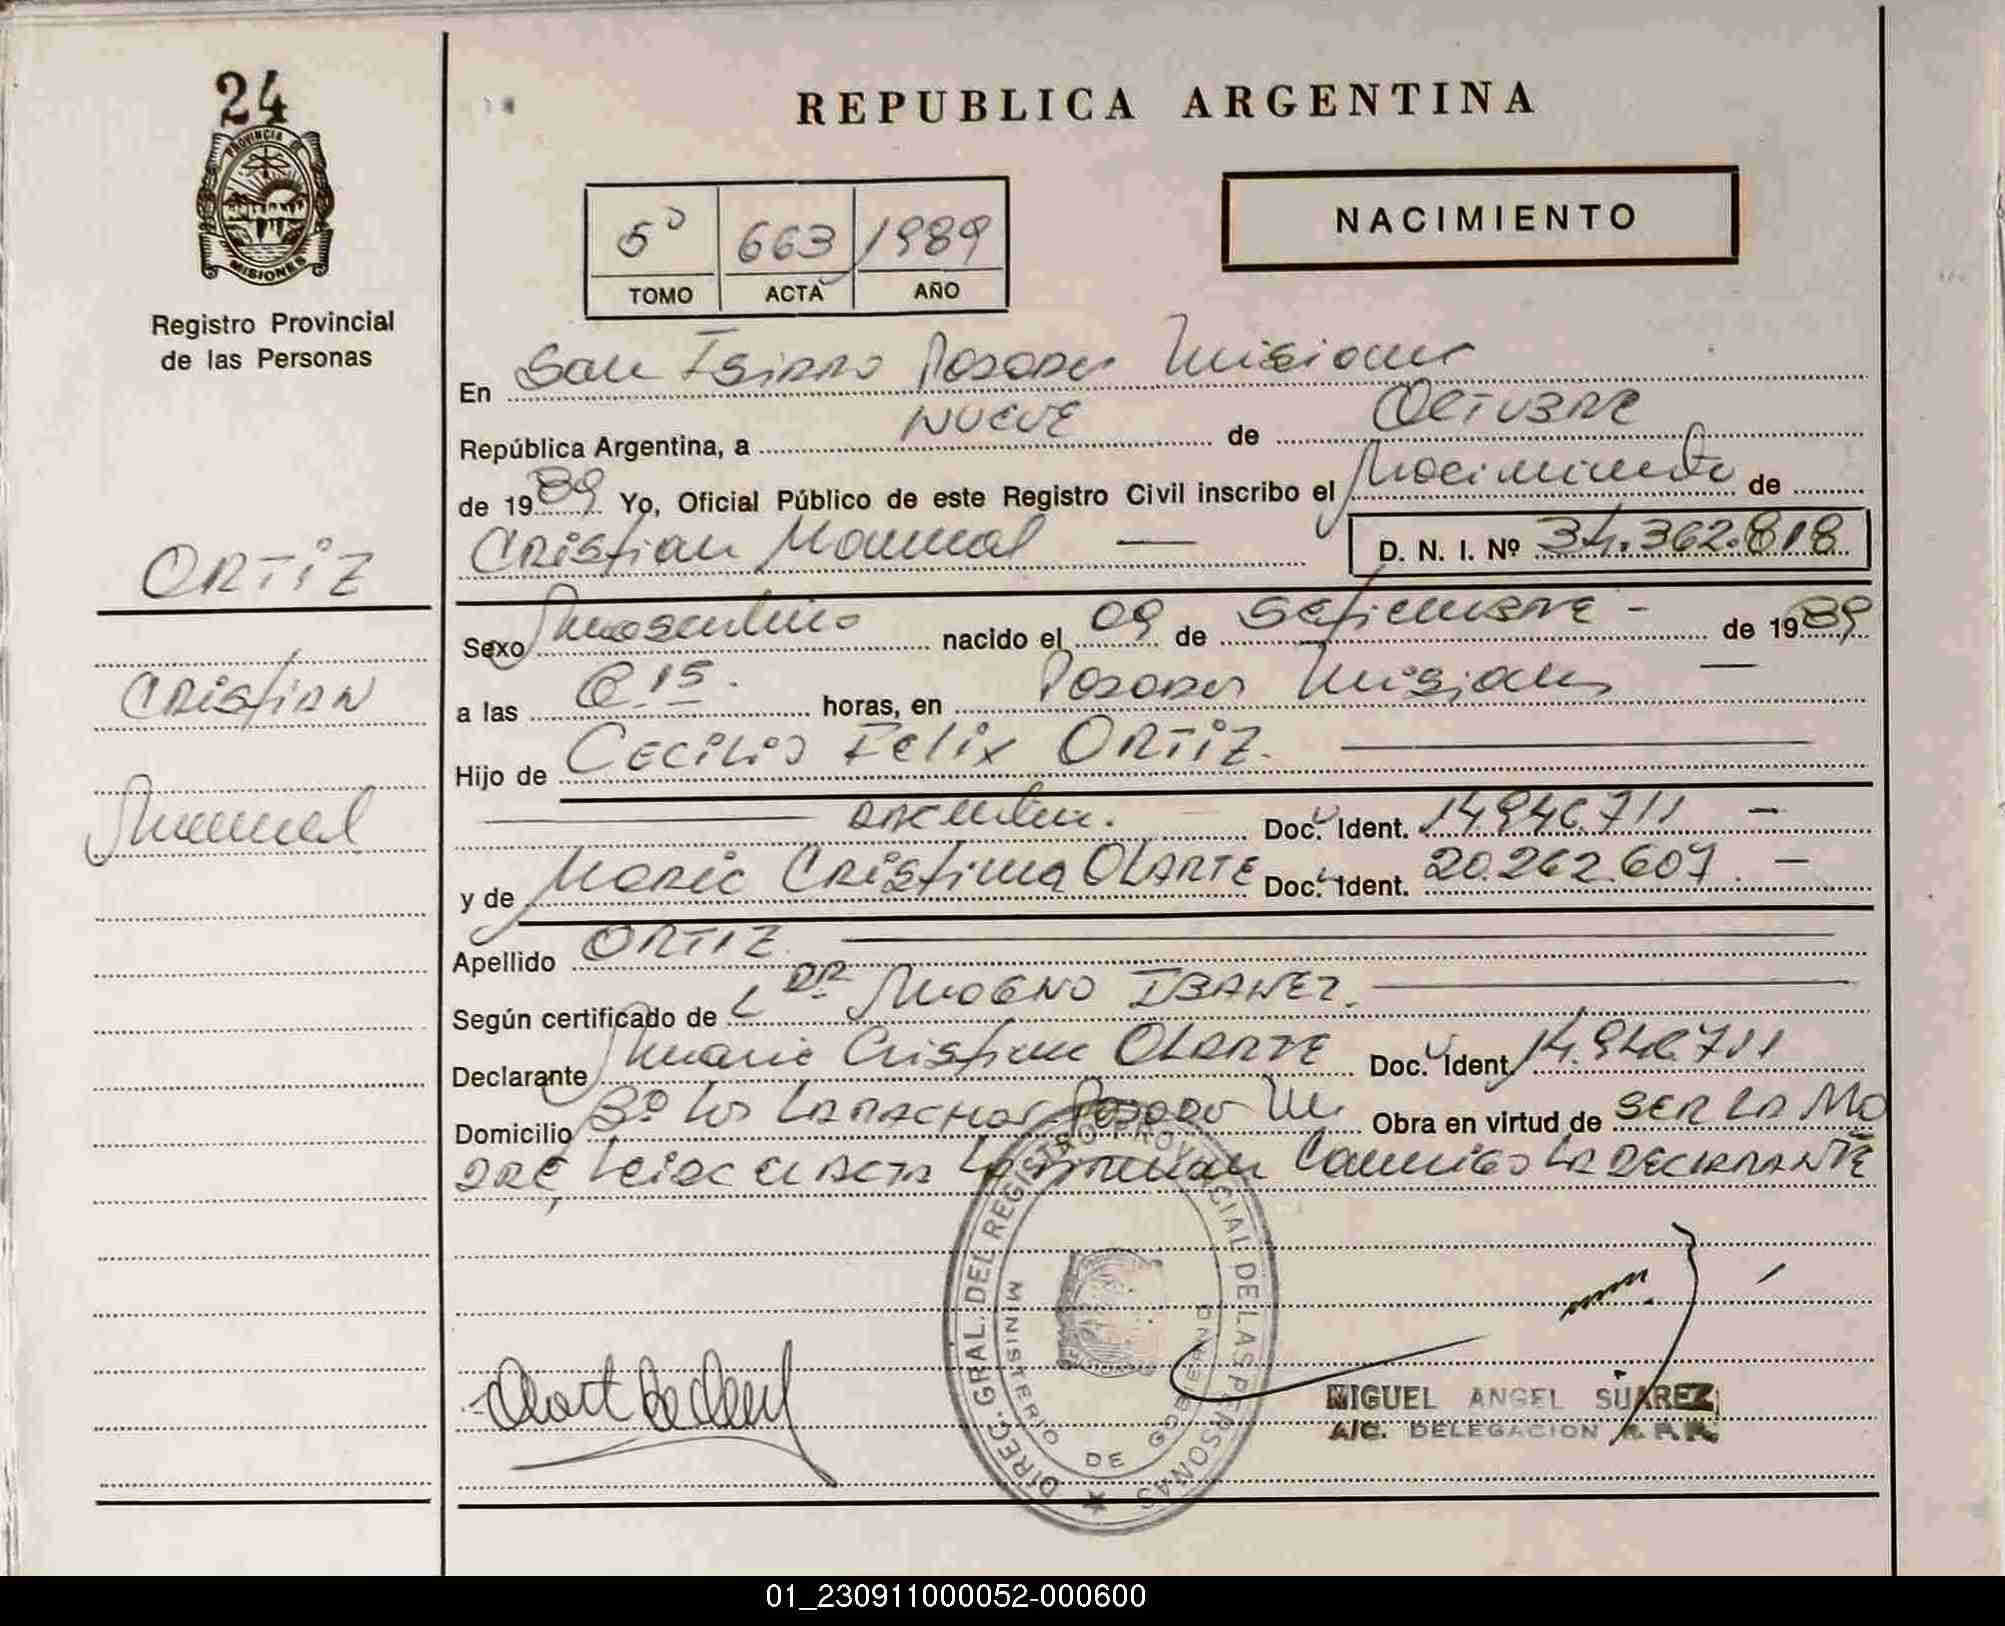 24
PROVINCIA DE
MISIONES
Registro Provincial
de las Personas
ORTIZ
CRISTIAN
Manuel
REPUBLICA ARGENTINA
NACIMIENTO
5º 663 1989
TOMO ACTA AÑO
En San Isidro Posadas Misiones
República Argentina, a NUEVE de OCTUBRE
de 1989 Yo, Oficial Público de este Registro Civil inscribo el Nacimiento de
CRistian Manuel — D. N. I. Nº 34.362.818
Sexo Masculino nacido el 09 de SEtiEMBRE - de 1989
a las 6.15. horas, en Posadas Misiones —
Hijo de CECILIO Felix ORTIZ.
Doc. Ident. 14.946.711 —
y de Maria CRistina OLARTE Doc. Ident. 20.262.607. —
Apellido ORTIZ
Según certificado de DR IBAÑEZ.
Declarante Maria Cristina OLARTE Doc. Ident. 14.946.711
Domicilio Bº Los LAPACHOS Posadas Mi Obra en virtud de SER LA MA
DRE, Leida el ACTA LA firman Conmigo LA DECLARANTE
DIREC. GRAL. DEL REGISTRO PROVINCIAL DE LAS PERSONAS
MINISTERIO DE GOBIERNO
MIGUEL ANGEL SUAREZ
A/C. DELEGACION R.P.P.
01_230911000052-000600